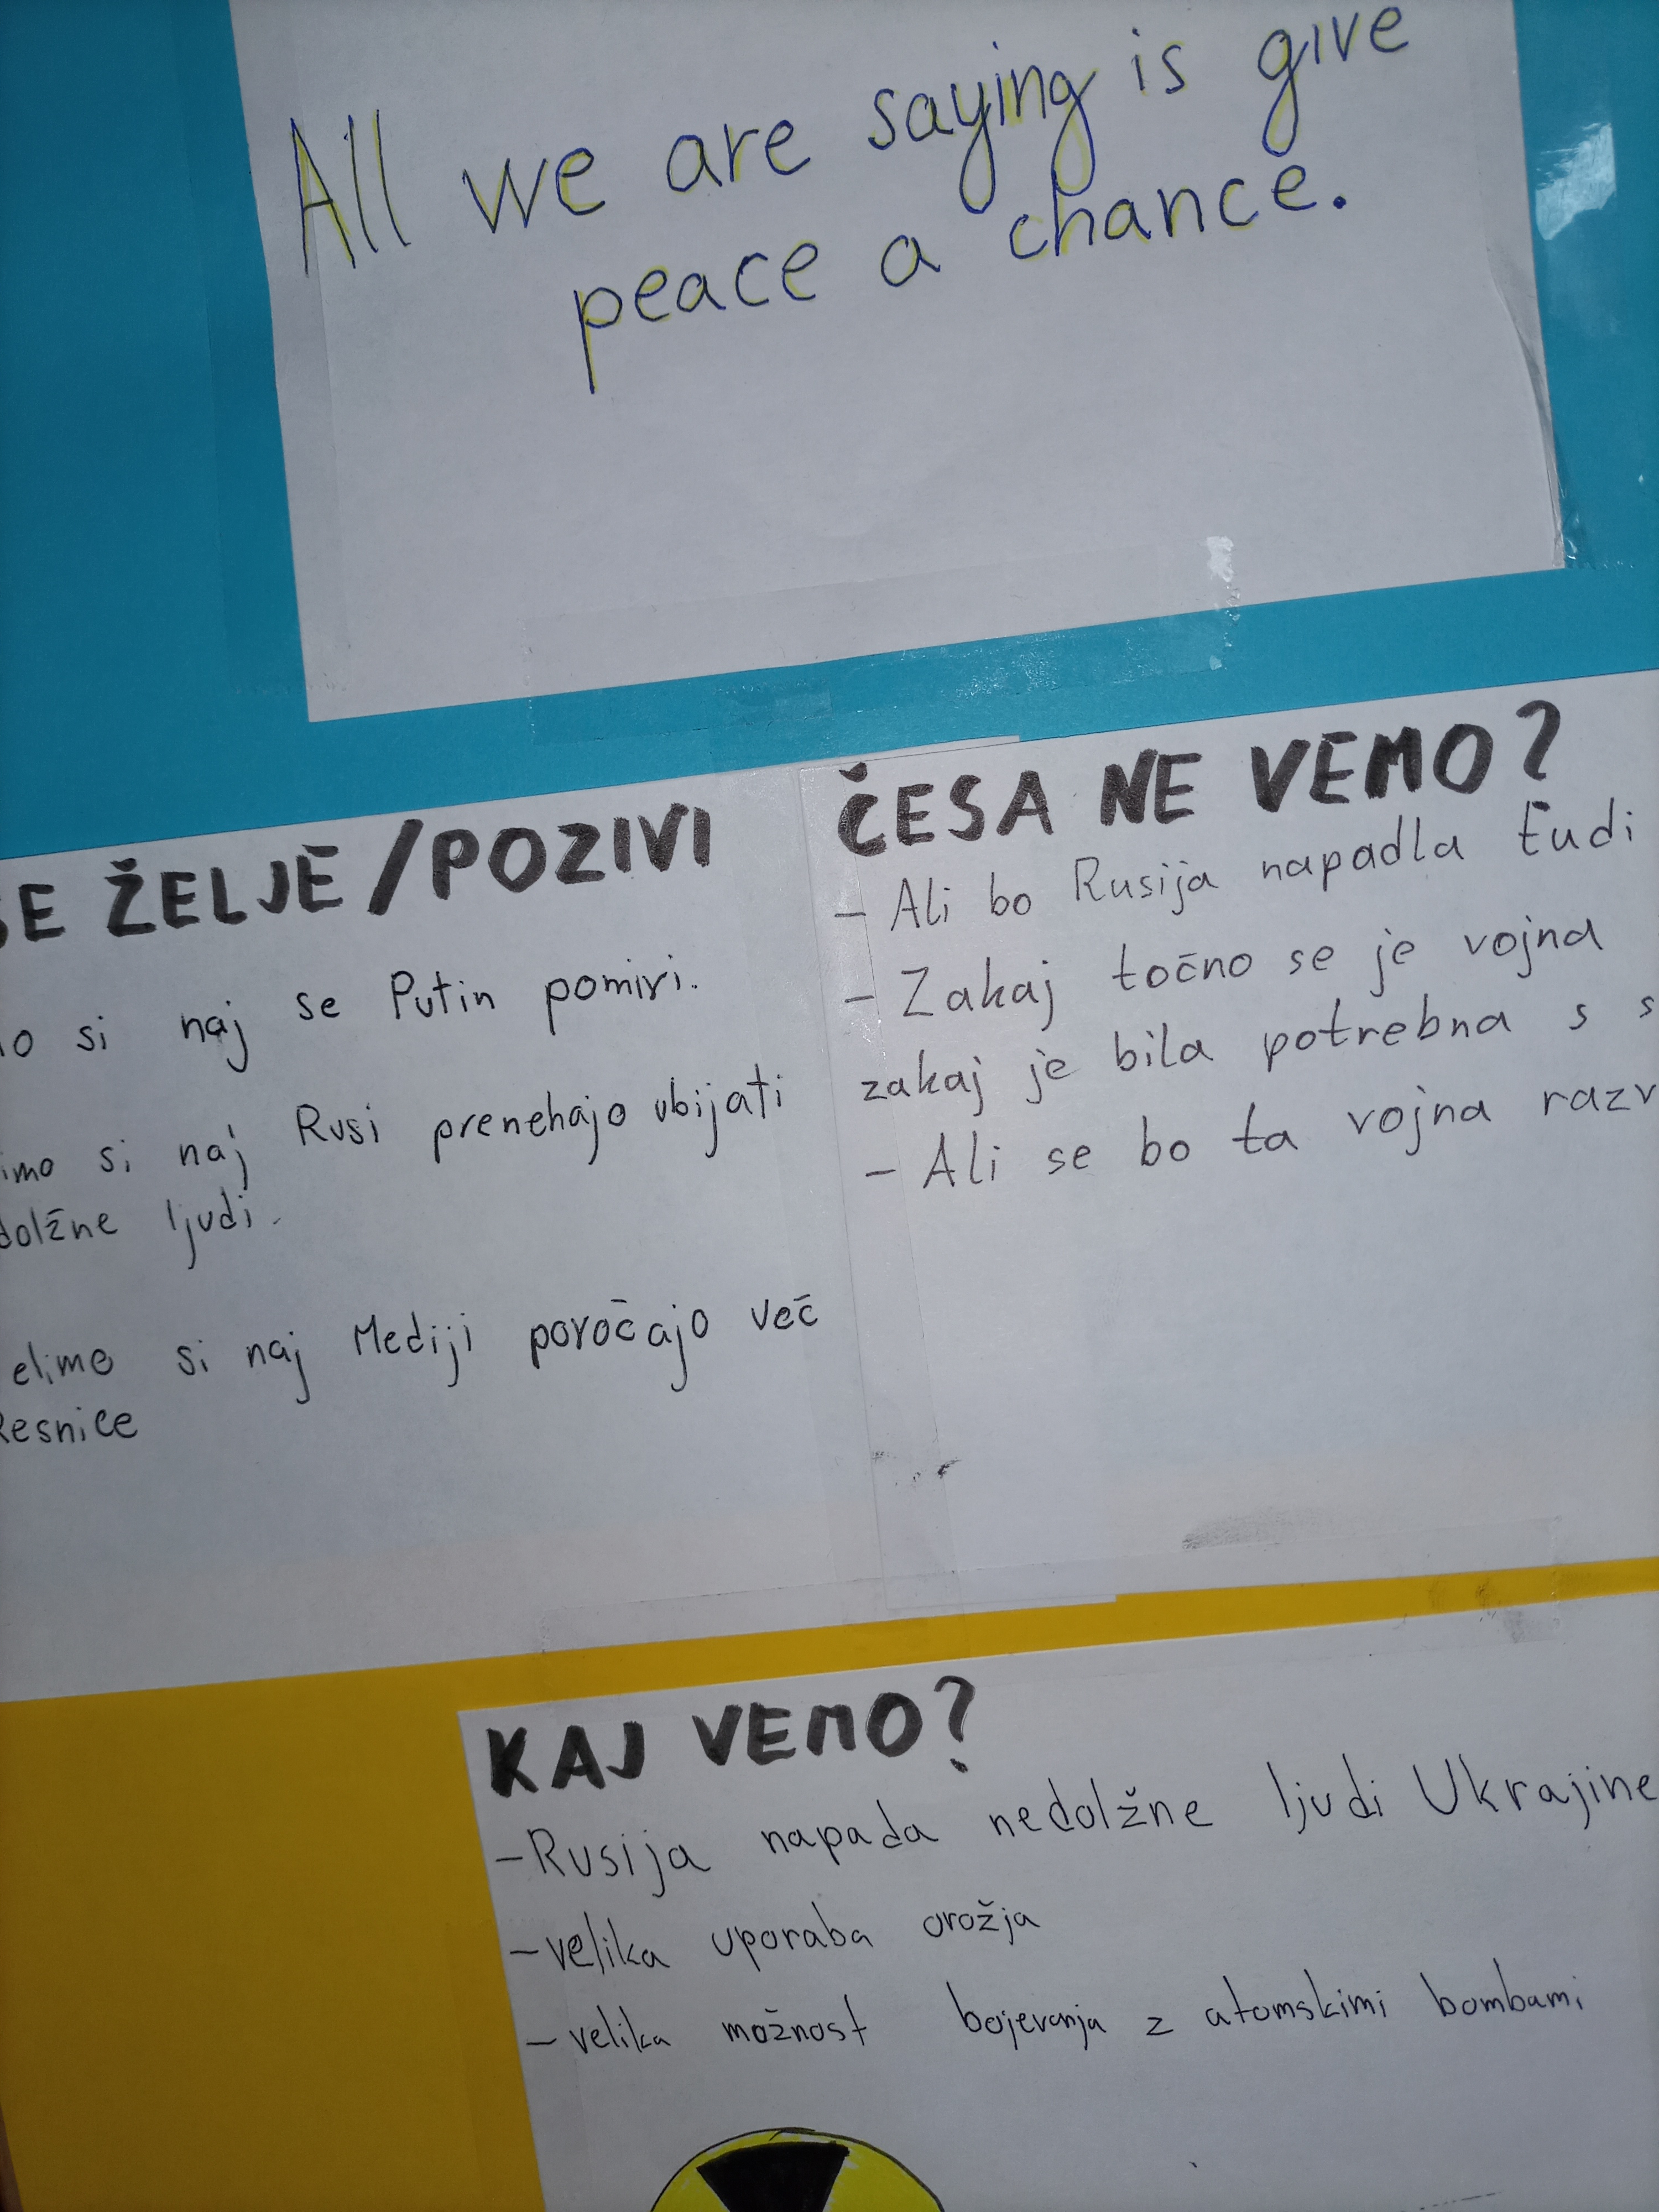 All we are saying is give
peace a chance.
ŽELJE/POZIVI
si naj se Putin pomiri.
si naj Rusi prenehajo ubijati
ljudi.
si naj Mediji poročajo več
ČESA NE VEMO?
- Ali bo Rusija napadla tudi
- Zakaj točno se je vojna
zakaj je bila potrebna s
- Ali se bo ta vojna
KAJ VEMO?
- Rusija napada nedolžne ljudi Ukrajine
- velika uporaba orožja
- velika možnost bojevanja z atomskimi bombami